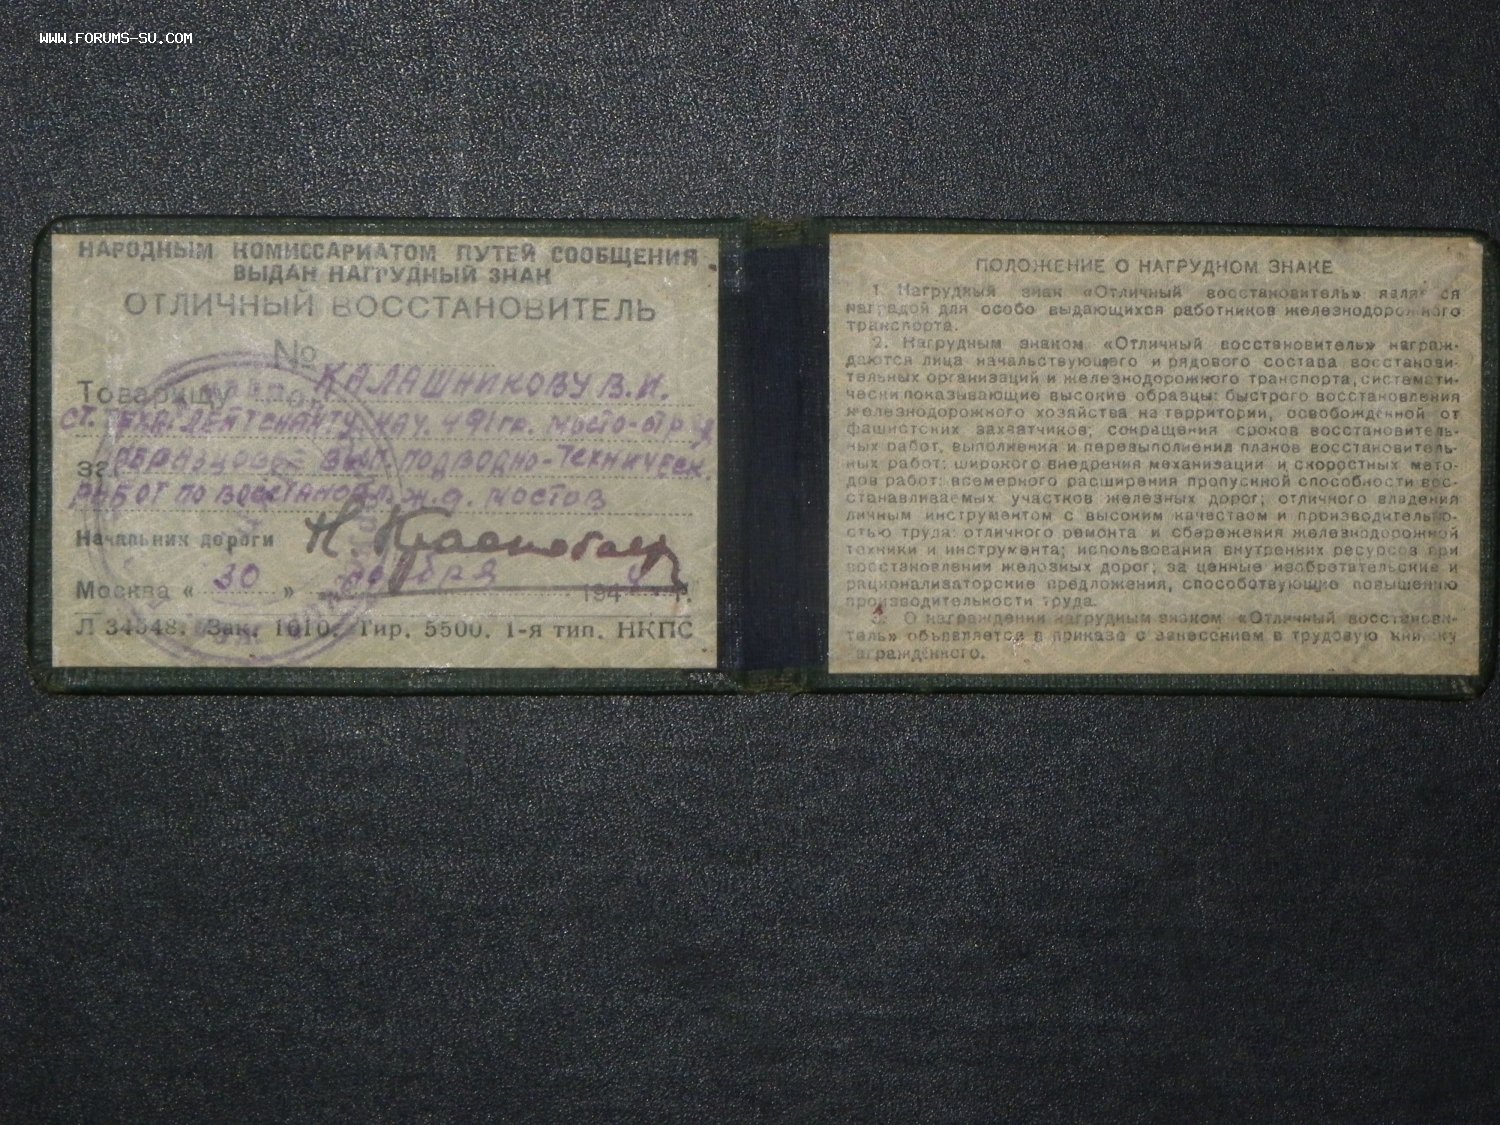 WWW.FORUMS-SU.COM
НАРОДНЫМ КОМИССАРИАТОМ ПУТЕЙ СООБЩЕНИЯ
ВЫДАН НАГРУДНЫЙ ЗНАК
ОТЛИЧНЫЙ ВОССТАНОВИТЕЛЬ
№
Товарищу КАЛАШНИКОВУ В.И.
СТ. ТЕХН. ЛЕЙТЕНАНТУ НАЧ. 491 мосто-отр.
За ОБРАЗЦОВОЕ ВЫП. ПОДВОДНО-ТЕХНИЧЕСК.
РАБОТ ПО ВОССТАНОВЛ. Ж.Д. МОСТОВ
Начальник дороги
Москва « 30 » 194 г.
Л 34548. Зак. 1010. Тир. 5500. 1-я тип. НКПС
ПОЛОЖЕНИЕ О НАГРУДНОМ ЗНАКЕ
1. Нагрудный знак «Отличный восстановитель» является
наградой для особо выдающихся работников железнодорожного
транспорта.
2. Нагрудным знаком «Отличный восстановитель» награж-
даются лица начальствующего и рядового состава восстанови-
тельных организаций и железнодорожного транспорта, системати-
чески показывающие высокие образцы: быстрого восстановления
железнодорожного хозяйства на территории, освобождённой от
фашистских захватчиков; сокращения сроков восстановитель-
ных работ, выполнения и перевыполнения планов восстановитель-
ных работ; широкого внедрения механизации и скоростных мето-
дов работ; всемерного расширения пропускной способности вос-
станавливаемых участков железных дорог; отличного владения
личным инструментом с высоким качеством и производительно-
стью труда; отличного ремонта и сбережения железнодорожной
техники и инструмента; использования внутренних ресурсов при
восстановлении железных дорог; за ценные изобретательские и
рационализаторские предложения, способствующие повышению
производительности труда.
3. О награждении нагрудным знаком «Отличный восстанови-
тель» объявляется в приказе с занесением в трудовую книжку
награждённого.